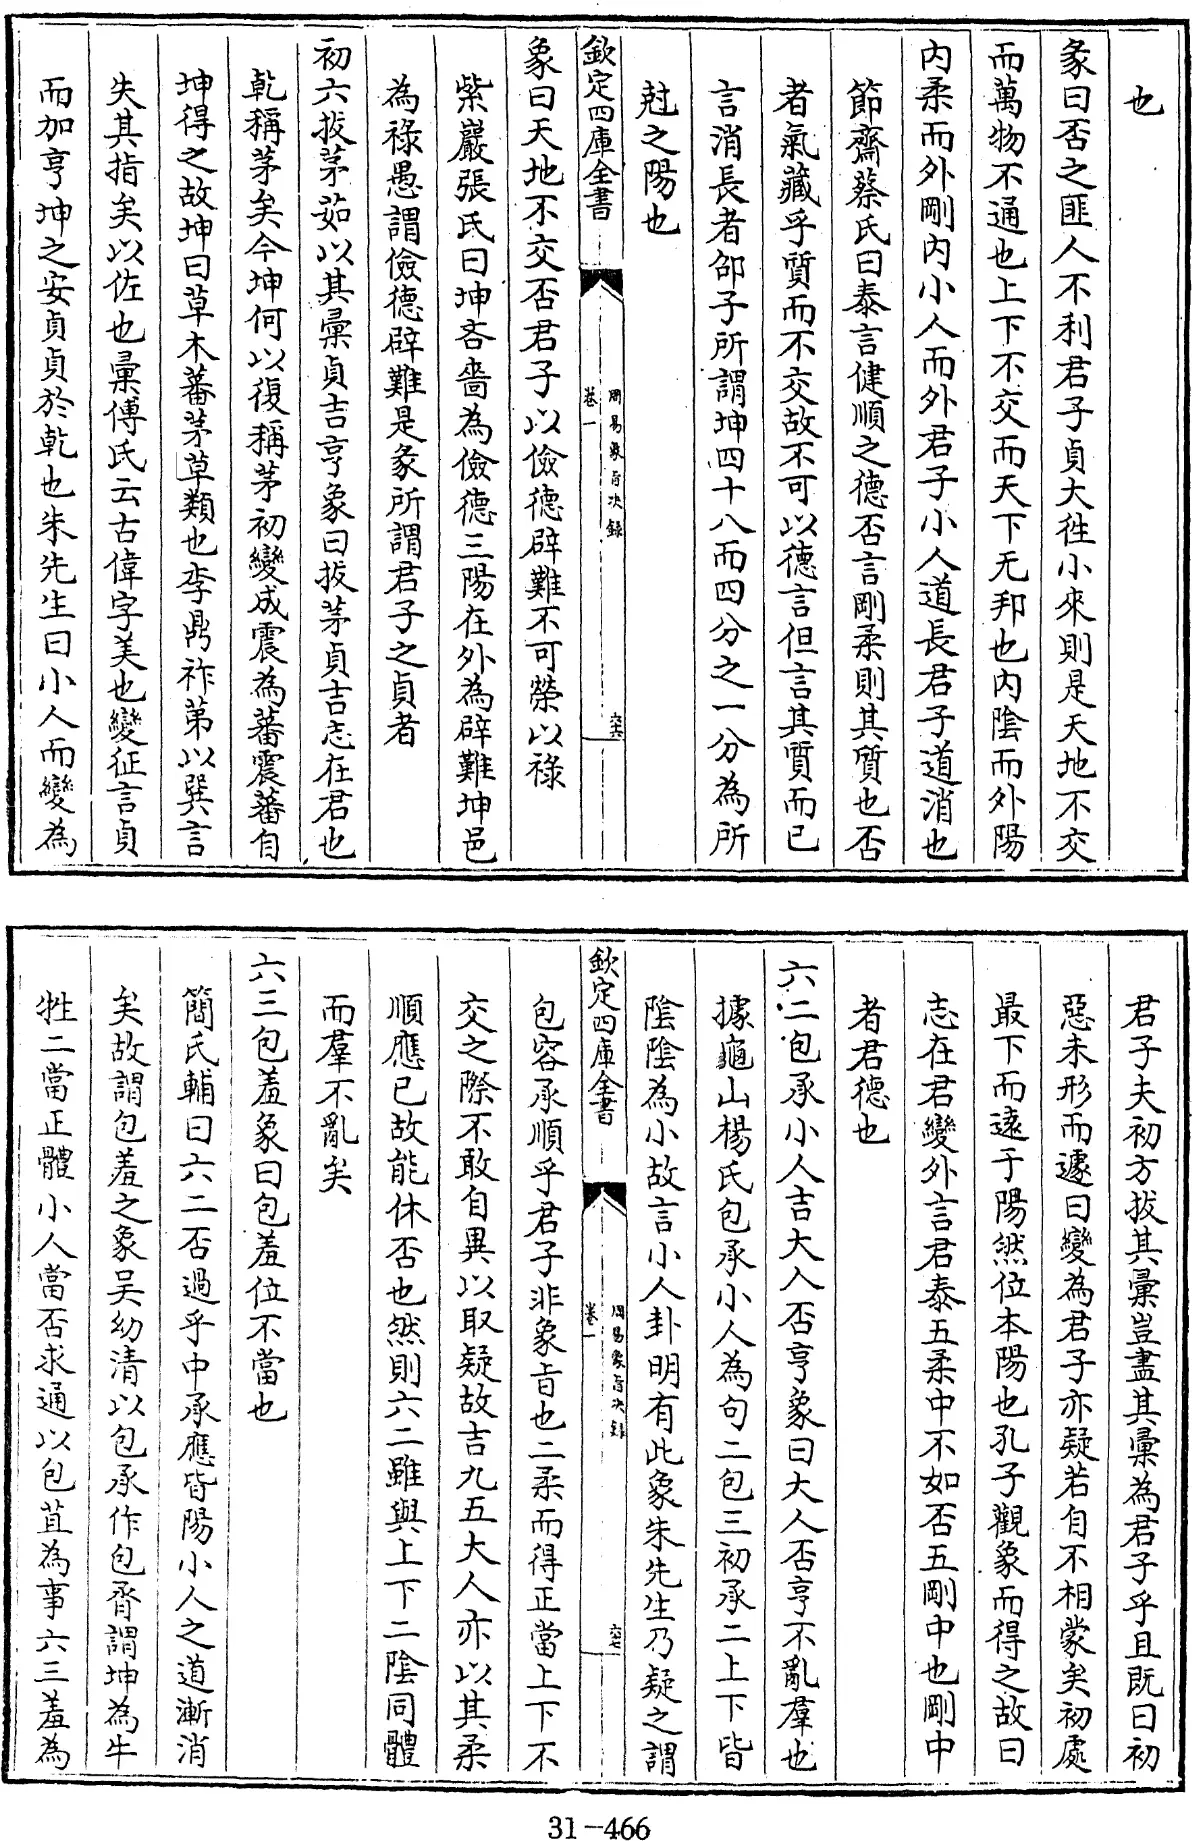 也
彖曰否之匪人不利君子貞大徃小來則是天地不交
而萬物不通也上下不交而天下无邦也内陰而外陽
内柔而外剛内小人而外君子小人道長君子道消也
節齋蔡氏曰泰言健順之德否言剛柔則其質也否
者氣藏乎質而不交故不可以德言但言其質而已
言消長者邵子所謂坤四十八而四分之一分為所
尅之陽也
欽定四庫全書
周易象旨決録
卷一
六六
象曰天地不交否君子以儉德辟難不可榮以祿
紫巖張氏曰坤吝嗇為儉德三陽在外為辟難坤邑
為祿愚謂儉德辟難是彖所謂君子之貞者
初六拔茅茹以其彙貞吉亨象曰拔茅貞吉志在君也
乾稱茅矣今坤何以復稱茅初變成震為蕃震蕃自
坤得之故坤曰草木蕃茅草類也李鼎祚第以巽言
失其指矣以佐也彙傅氏云古偉字美也變征言貞
而加亨坤之安貞貞於乾也朱先生曰小人而變為
君子夫初方拔其彙豈盡其彙為君子乎且既曰初
惡未形而遽曰變為君子亦疑若自不相蒙矣初處
最下而遠于陽然位本陽也孔子觀象而得之故曰
志在君變外言君泰五柔中不如否五剛中也剛中
者君德也
六二包承小人吉大人否亨象曰大人否亨不亂羣也
據龜山楊氏包承小人為句二包三初承二上下皆
陰陰為小故言小人卦明有此象朱先生乃疑之謂
欽定四庫全書
周易象旨決録
卷一
六七
包容承順乎君子非象旨也二柔而得正當上下不
交之際不敢自異以取疑故吉九五大人亦以其柔
順應已故能休否也然則六二雖與上下二陰同體
而羣不亂矣
六三包羞象曰包羞位不當也
簡氏輔曰六二否過乎中承應皆陽小人之道漸消
矣故謂包羞之象吴幼清以包承作包脀謂坤為牛
牲二當正體小人當否求通以包苴為事六三羞為
31-466